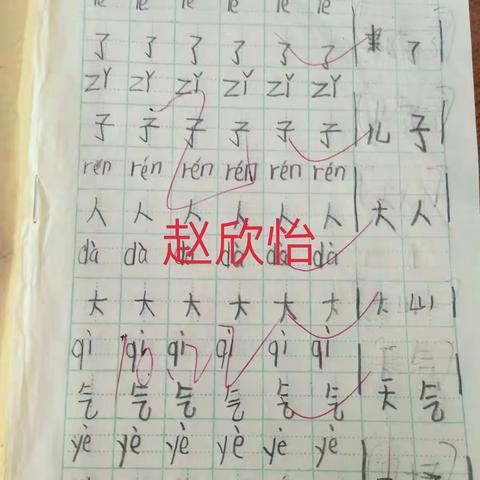 le le le le le le
了 了 了 了 了 了 来 了
zǐ zǐ zǐ zǐ zǐ zǐ
子 子 子 子 子 子 儿 子
rén rén rén rén rén rén
人 人 人 人 人 人 大 人
赵欣怡
dà dà dà dà dà dà
大 大 大 大 大 大 大 山
qì qì qì qì qì qì
气 气 气 气 气 气 天 气
yè yè yè yè yè yè